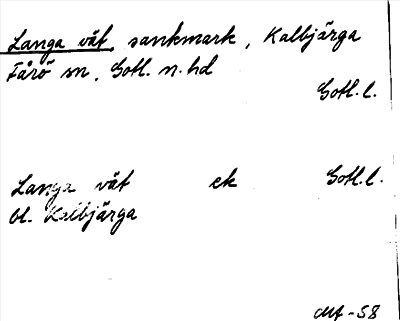 Langa vät, sankmark, Kalbjärga
Fårö sn, Gotl. n. hd
Gotl. l.
Langa vät ek Gotl. l.
bl. Kalbjärga
-58